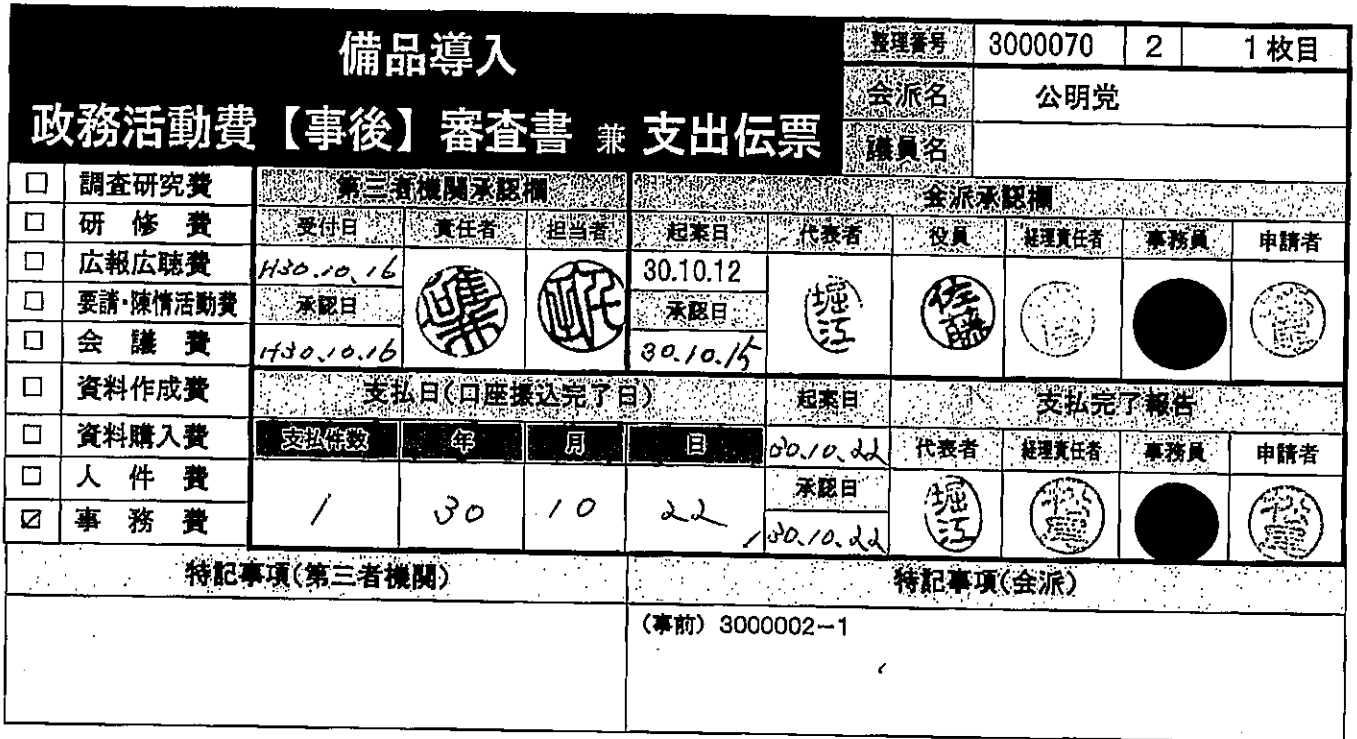 備品導入
政務活動費【事後】審査書 兼 支出伝票
整理番号 3000070 2 1枚目
会派名 公明党
議員名
□ 調査研究費
□ 研修費
□ 広報広聴費
□ 要請・陳情活動費
□ 会議費
□ 資料作成費
□ 資料購入費
□ 人件費
☑ 事務費
第三者機関承認欄
受付日 責任者 担当者
H30.10.16
承認日
H30.10.16
会派承認欄
起案日 代表者 役員 経理責任者 事務員 申請者
30.10.12 堀江 佐藤
承認日
30.10.15
支払日(口座振込完了日)
支払件数 年 月 日
1 30 10 22
起案日
30.10.22
承認日
30.10.22
支払完了報告
代表者 経理責任者 事務員 申請者
堀江
特記事項(第三者機関)
特記事項(会派)
(事前) 3000002-1